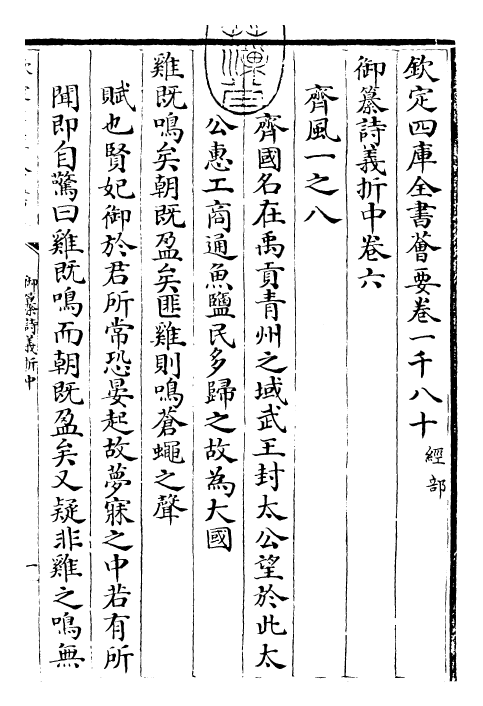 欽定四庫全書薈要卷一千八十 經部
御纂詩義折中卷六
齊風一之八
齊國名在禹貢青州之域武王封太公望於此太
公惠工商通魚鹽民多歸之故為大國
雞既鳴矣朝既盈矣匪雞則鳴蒼蠅之聲
賦也賢妃御於君所常恐晏起故夢寐之中若有所
聞即自驚曰雞既鳴而朝既盈矣又疑非雞之鳴無
御纂詩義折中
一